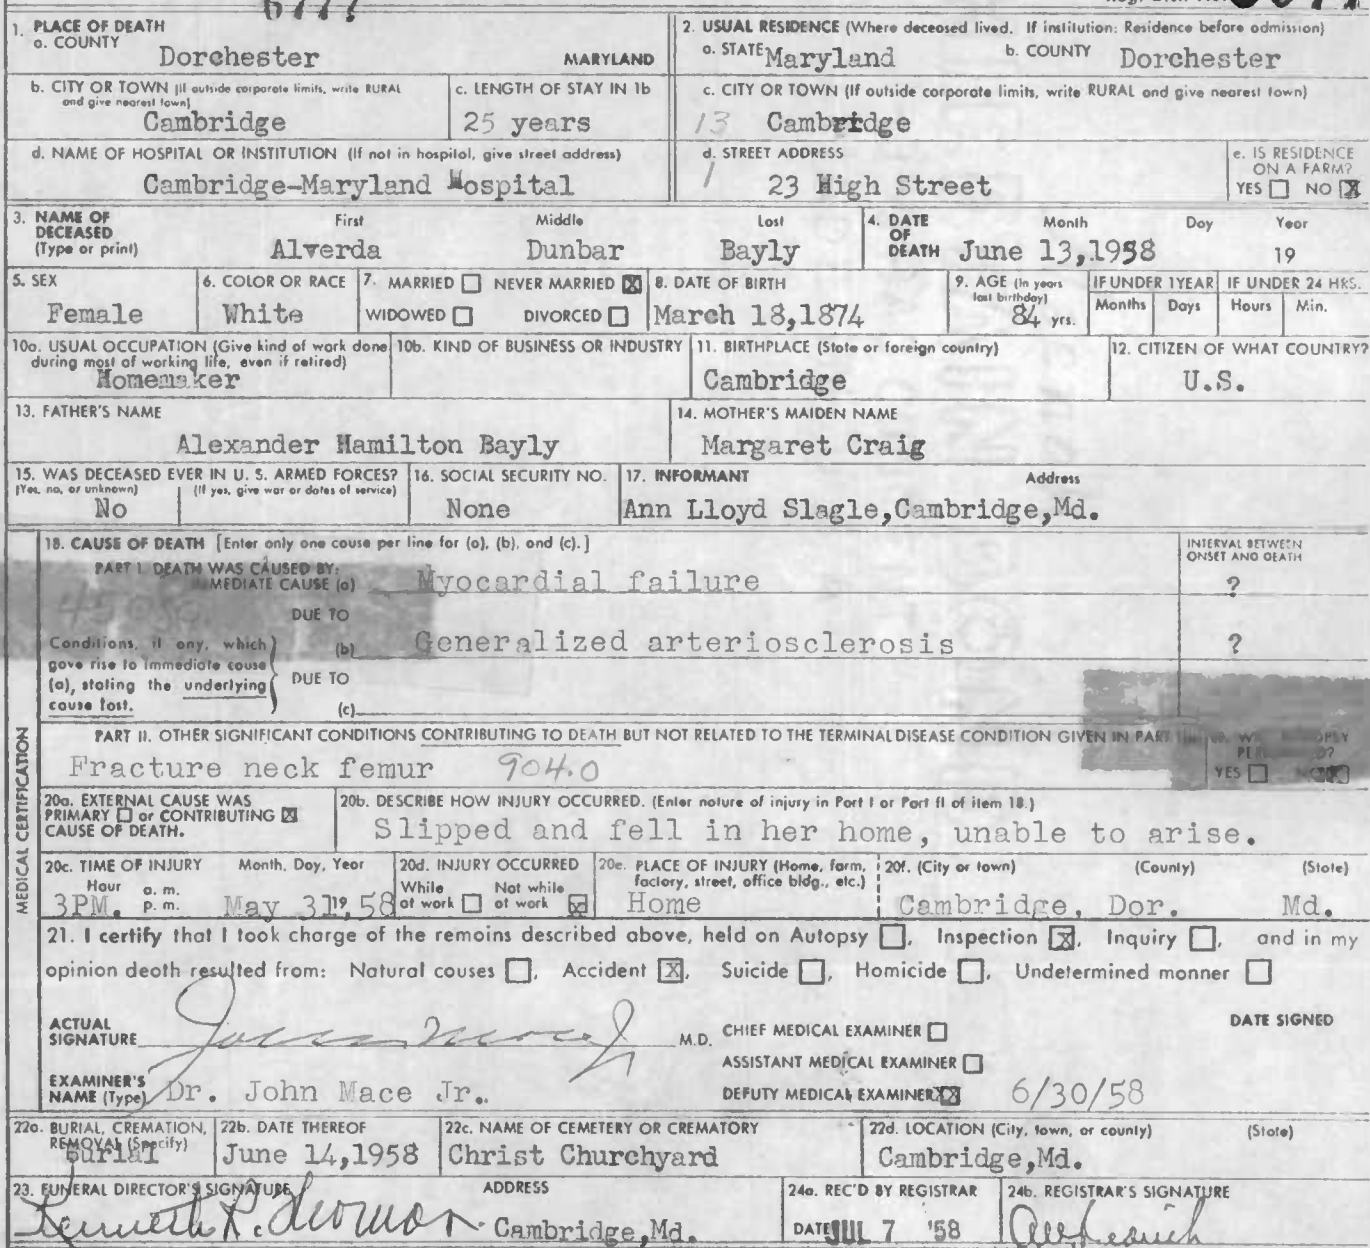 1. PLACE OF DEATH
a. COUNTY
Dorchester MARYLAND
2. USUAL RESIDENCE (Where deceased lived. If institution: Residence before admission)
a. STATE Maryland b. COUNTY Dorchester
b. CITY OR TOWN (If outside corporate limits, write RURAL and give nearest town)
Cambridge
c. LENGTH OF STAY IN 1b
25 years
c. CITY OR TOWN (If outside corporate limits, write RURAL and give nearest town)
13 Cambridge
d. NAME OF HOSPITAL OR INSTITUTION (If not in hospital, give street address)
Cambridge-Maryland Hospital
d. STREET ADDRESS
1 23 High Street
e. IS RESIDENCE ON A FARM?
YES NO X
3. NAME OF DECEASED (Type or print)
First Middle Last
Alverda Dunbar Bayly
4. DATE OF DEATH
Month Day Year
June 13,1958 19
5. SEX
Female
6. COLOR OR RACE
White
7. MARRIED NEVER MARRIED X
WIDOWED DIVORCED
8. DATE OF BIRTH
March 18,1874
9. AGE (In years last birthday)
84 yrs.
IF UNDER 1 YEAR
Months Days
IF UNDER 24 HRS.
Hours Min.
10a. USUAL OCCUPATION (Give kind of work done during most of working life, even if retired)
Homemaker
10b. KIND OF BUSINESS OR INDUSTRY
11. BIRTHPLACE (State or foreign country)
Cambridge
12. CITIZEN OF WHAT COUNTRY?
U.S.
13. FATHER'S NAME
Alexander Hamilton Bayly
14. MOTHER'S MAIDEN NAME
Margaret Craig
15. WAS DECEASED EVER IN U. S. ARMED FORCES?
(Yes, no, or unknown) (If yes, give war or dates of service)
No
16. SOCIAL SECURITY NO.
None
17. INFORMANT Address
Ann Lloyd Slagle,Cambridge,Md.
MEDICAL CERTIFICATION
18. CAUSE OF DEATH [Enter only one cause per line for (a), (b), and (c).]
INTERVAL BETWEEN ONSET AND DEATH
PART I. DEATH WAS CAUSED BY:
MEDIATE CAUSE (a) Myocardial failure ?
DUE TO
Conditions, if any, which gave rise to immediate cause (a), stating the underlying cause last.
(b) Generalized arteriosclerosis ?
DUE TO
(c)
PART II. OTHER SIGNIFICANT CONDITIONS CONTRIBUTING TO DEATH BUT NOT RELATED TO THE TERMINAL DISEASE CONDITION GIVEN IN PART
Fracture neck femur 904.0
YES
20a. EXTERNAL CAUSE WAS
PRIMARY or CONTRIBUTING X
CAUSE OF DEATH.
20b. DESCRIBE HOW INJURY OCCURRED. (Enter nature of injury in Part I or Part II of item 18.)
Slipped and fell in her home, unable to arise.
20c. TIME OF INJURY Month, Day, Year
Hour a. m.
3PM. p. m. May 31, 19 58
20d. INJURY OCCURRED
While at work Not while at work X
20e. PLACE OF INJURY (Home, farm, factory, street, office bldg., etc.)
Home
20f. (City or town) (County) (State)
Cambridge, Dor. Md.
21. I certify that I took charge of the remains described above, held on Autopsy , Inspection X, Inquiry , and in my
opinion death resulted from: Natural causes , Accident X, Suicide , Homicide , Undetermined manner
ACTUAL SIGNATURE John Mace Jr M.D.
CHIEF MEDICAL EXAMINER
ASSISTANT MEDICAL EXAMINER
DEPUTY MEDICAL EXAMINER XX
DATE SIGNED
6/30/58
EXAMINER'S NAME (Type) Dr. John Mace Jr.
22a. BURIAL, CREMATION, REMOVAL (Specify)
Burial
22b. DATE THEREOF
June 14,1958
22c. NAME OF CEMETERY OR CREMATORY
Christ Churchyard
22d. LOCATION (City, town, or county) (State)
Cambridge,Md.
23. FUNERAL DIRECTOR'S SIGNATURE ADDRESS
Kenneth R. Cambridge,Md.
24a. REC'D BY REGISTRAR
DATE JUL 7 '58
24b. REGISTRAR'S SIGNATURE